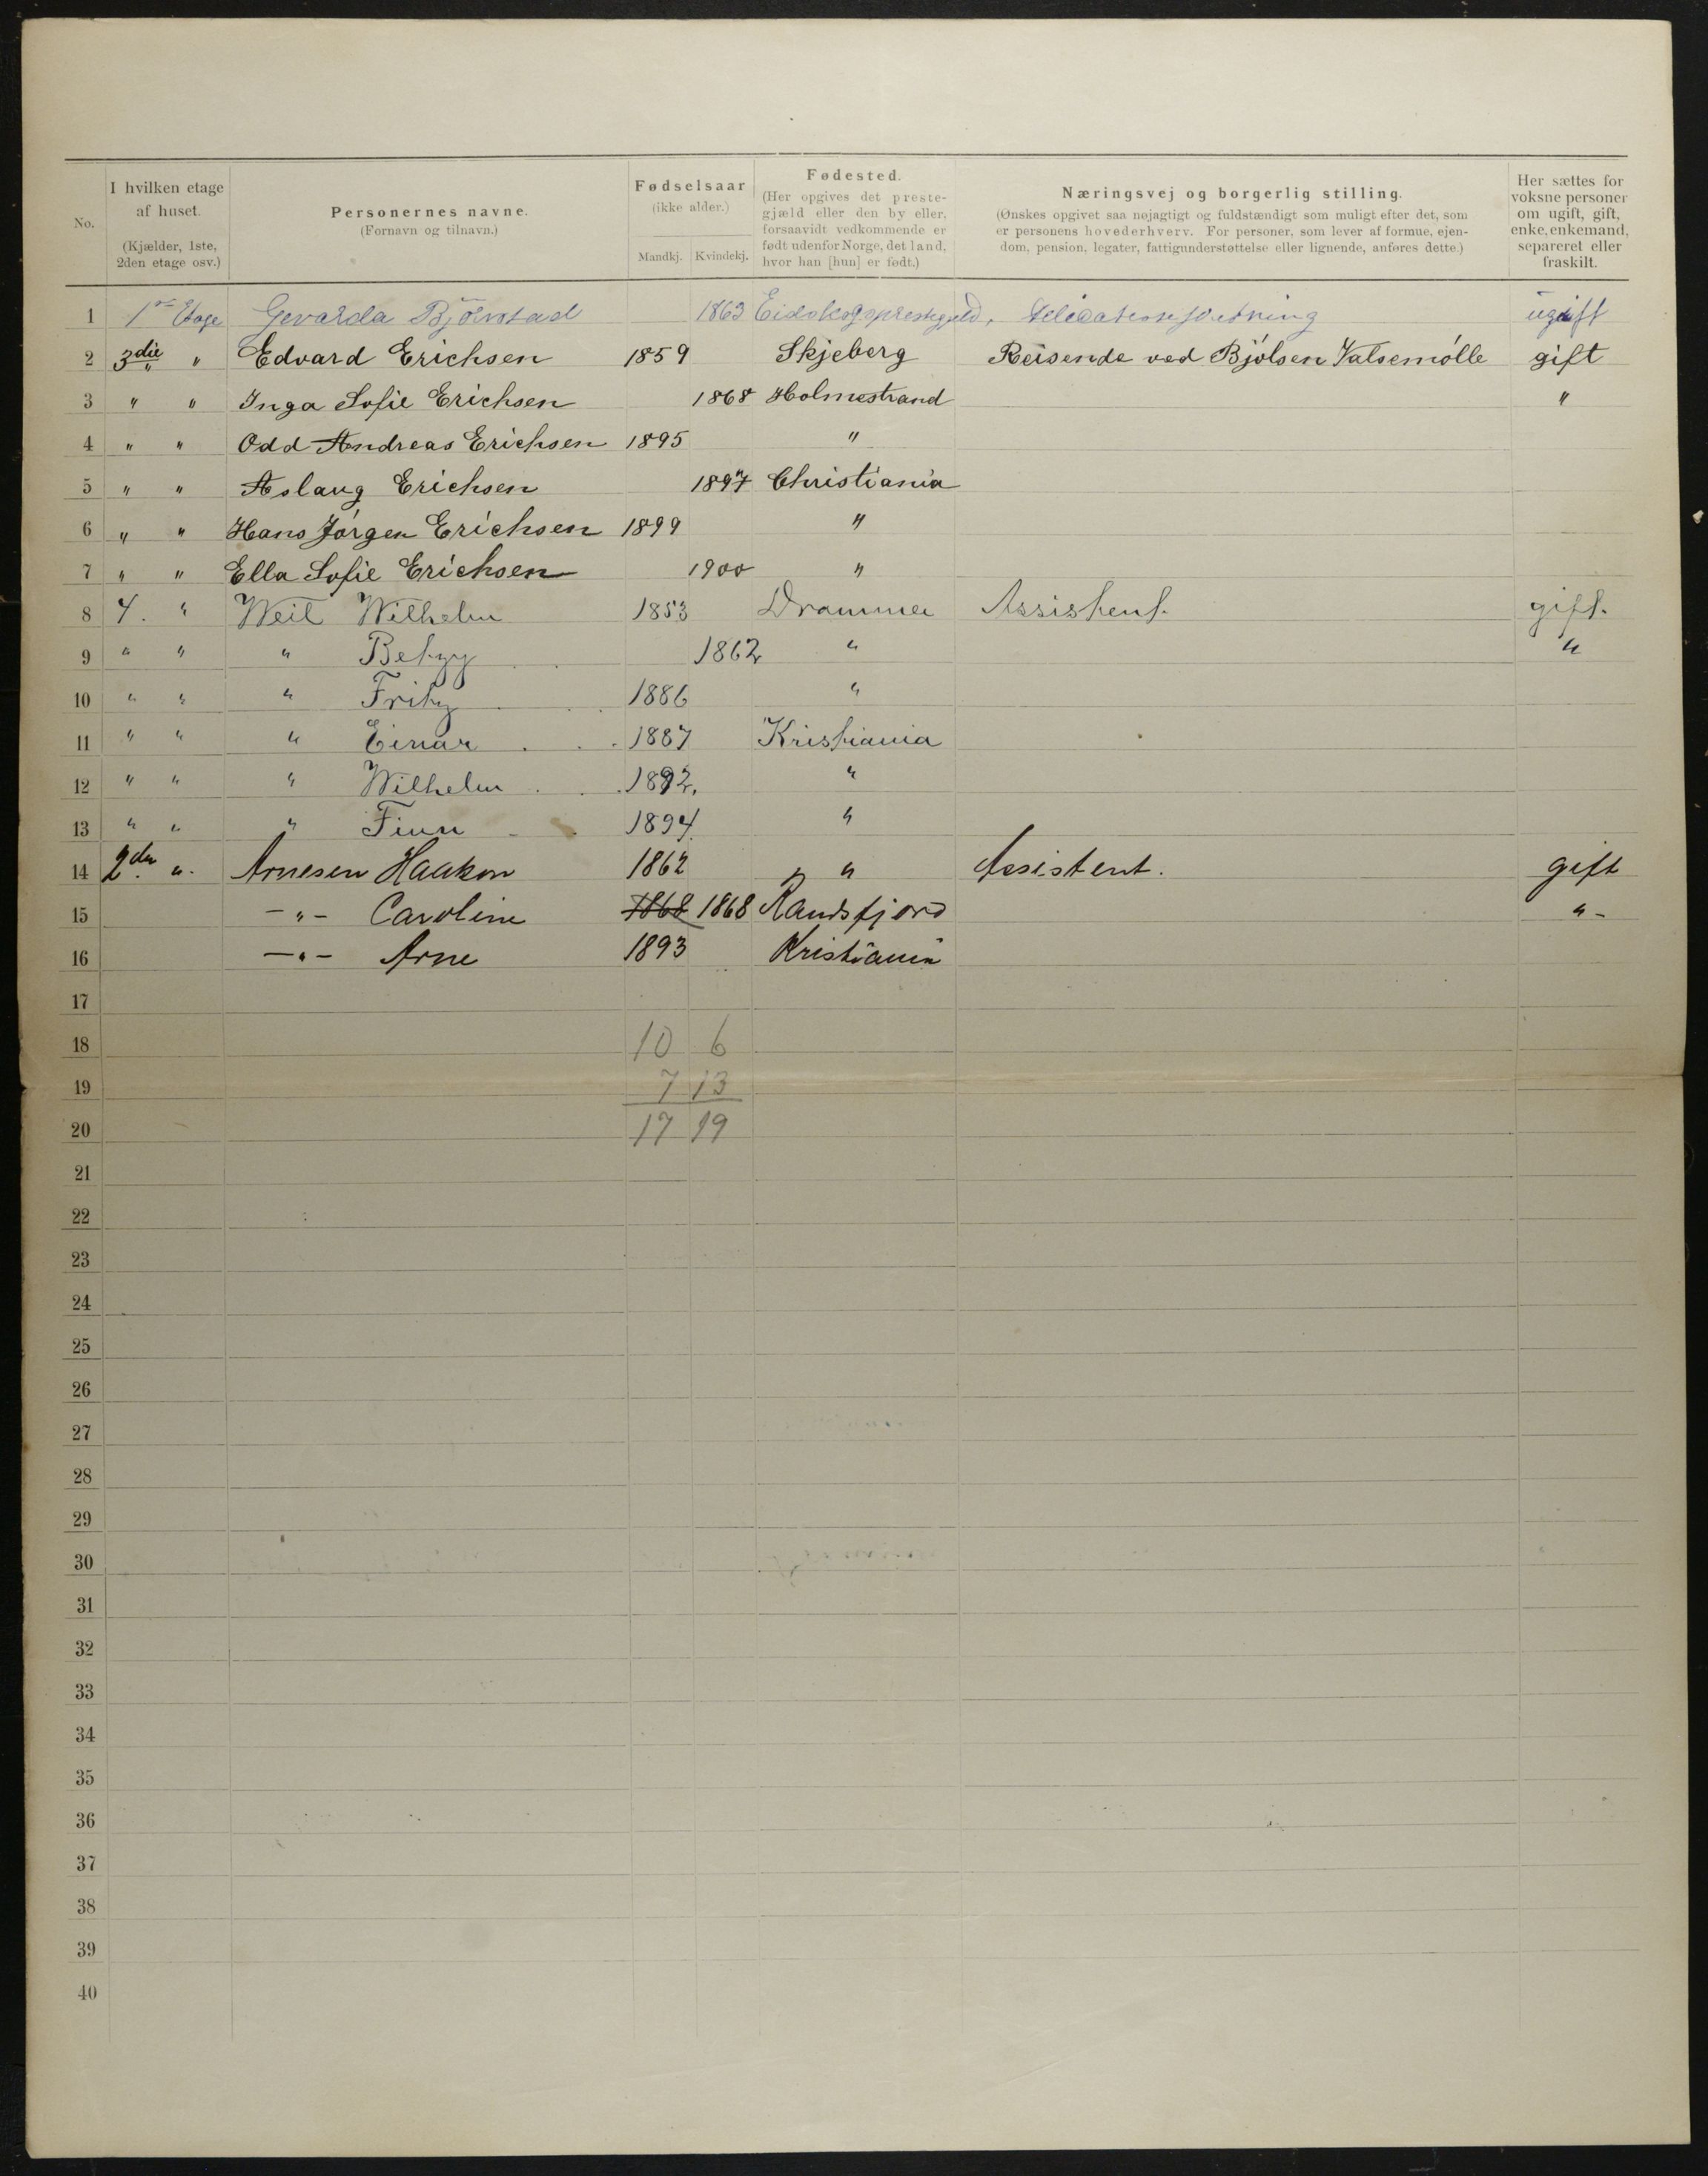 No. | I hvilken etage af huset. (Kjælder, 1ste, 2den etage osv.) | Personernes navne. (Fornavn og tilnavn.) | Fødselsaar (ikke alder.) Mandkj. Kvindekj. | Fødested. (Her opgives det prestegjæld eller den by eller, forsaavidt vedkommende er født udenfor Norge, det land, hvor han [hun] er født.) | Næringsvej og borgerlig stilling. (Ønskes opgivet saa nøjagtigt og fuldstændigt som muligt efter det, som er personens hovederhverv. For personer, som lever af formue, ejendom, pension, legater, fattigunderstøttelse eller lignende, anføres dette.) | Her sættes for voksne personer om ugift, gift, enke, enkemand, separeret eller fraskilt.
1 1ste Etage Gevarda Björnstad 1863 ugift
2 3die " Edvard Erichsen 1859 Skjeberg Reisende ved Bjólsen Valsemólle gift
3 " " Inga Sofie Erichsen 1868 Holmestrand "
4 " " Odd Andreas Erichsen 1895 "
5 " " Aslaug Erichsen 1897 Christiania
6 " " Hans Jórgen Erichsen 1899 "
7 " " Ella Sofie Erichsen 1900 "
8 4. " Weil Wilhelm 1853 Drammen Assistent. gift.
9 " " " Betzy 1862 " "
10 " " " Fritz 1886 "
11 " " " Einar 1887 Kristiania
12 " " " Wilhelm 1892. "
13 " " " Finn 1894 "
14 2den " Arnesen Haakon 1862 " " Assistent. gift
15 -"- Caroline 1868 1868 Randsfjord "-
16 -"- Arne 1893 Kristiania
17
18 10 6
19 7 13
20 17 19
21
22
23
24
25
26
27
28
29
30
31
32
33
34
35
36
37
38
39
40